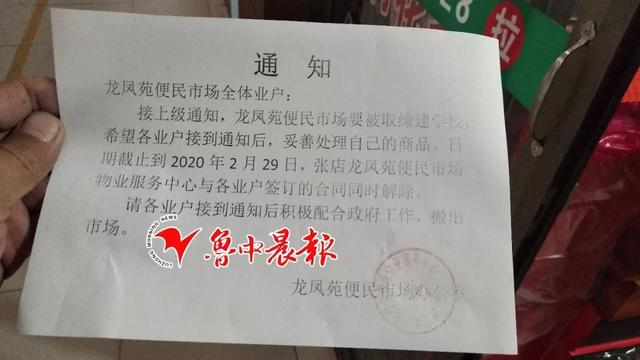 通 知
龙凤苑便民市场全体业户：
接上级通知，龙凤苑便民市场要被取缔建学校，
希望各业户接到通知后，妥善处理自己的商品。日
期截止到 2020 年 2 月 29 日，张店龙凤苑便民市场
物业服务中心与各业户签订的合同同时解除。
请各业户接到通知后积极配合政府工作，搬出
市场。
龙凤苑便民市场办公室
鲁中晨报
LUZHONG MORNING NEWS
拉